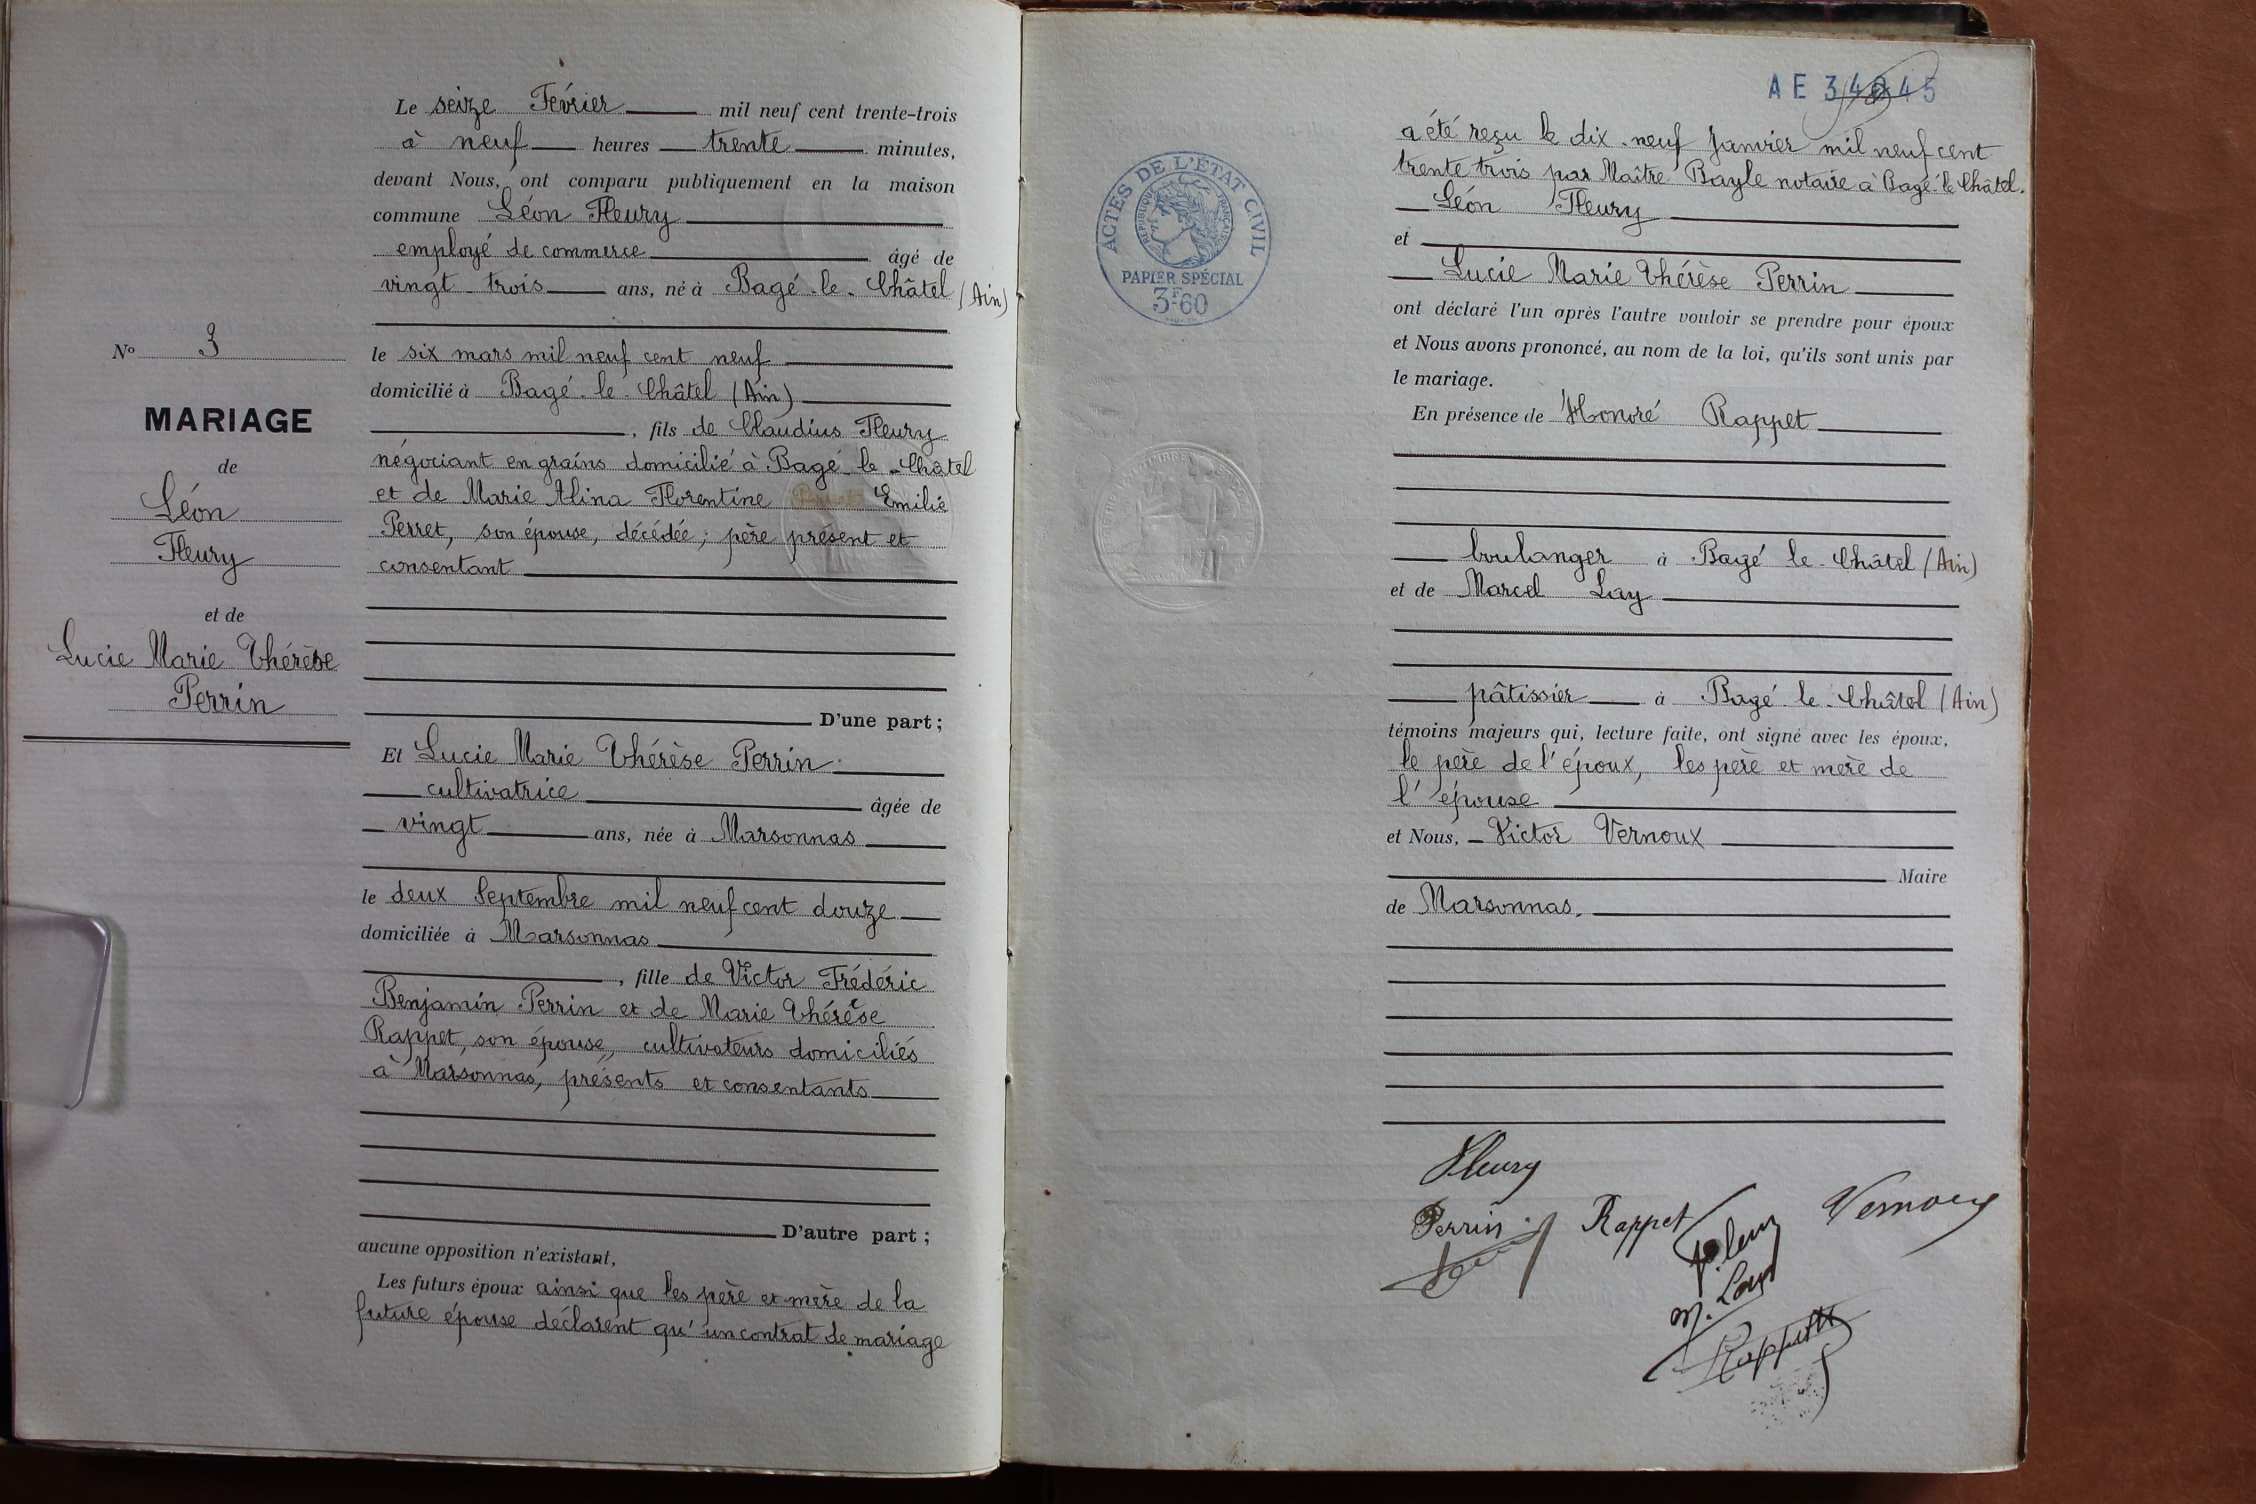 Le seize Février mil neuf cent trente-trois
à neuf heures trente minutes,
devant Nous, ont comparu publiquement en la maison
commune Léon Fleury
employé de commerce âgé de
vingt trois ans, né à Bagé-le-Châtel (Ain)
le six mars mil neuf cent neuf
domicilié à Bagé-le-Châtel (Ain)
, fils de Claudius Fleury
négociant en grains domicilié à Bagé-le-Châtel
et de Marie Alina Florentine Emilie
Perret, son épouse, décédée; père présent et
consentant
D'une part;
Et Lucie Marie Thérèse Perrin
cultivatrice âgée de
vingt ans, née à Marsonnas
le deux Septembre mil neuf cent douze
domiciliée à Marsonnas
, fille de Victor Frédéric
Benjamin Perrin et de Marie Thérèse
Rappet, son épouse, cultivateurs domiciliés
à Marsonnas, présents et consentants
D'autre part;
aucune opposition n'existant,
Les futurs époux ainsi que les père et mère de la
future épouse déclarent qu'un contrat de mariage
No 3
MARIAGE
de
Léon
Fleury
et de
Lucie Marie Thérèse
Perrin
AE 34245
a été reçu le dix-neuf Janvier mil neuf cent
trente trois par Maître Bayle notaire à Bagé-le-Châtel.
Léon Fleury
et
Lucie Marie Thérèse Perrin
ont déclaré l'un après l'autre vouloir se prendre pour époux
et Nous avons prononcé, au nom de la loi, qu'ils sont unis par
le mariage.
En présence de Honoré Rappet
boulanger à Bagé-le-Châtel (Ain)
et de Marcel Lay
pâtissier à Bagé-le-Châtel (Ain)
témoins majeurs qui, lecture faite, ont signé avec les époux,
le père de l'époux, les père et mère de
l'épouse
et Nous, Victor Vernoux
Maire
de Marsonnas.
ACTES DE L'ÉTAT CIVIL
RÉPUBLIQUE FRANÇAISE
PAPIER SPÉCIAL
3F60
Fleury
Perrin Rappet Vernoux
M. Lay